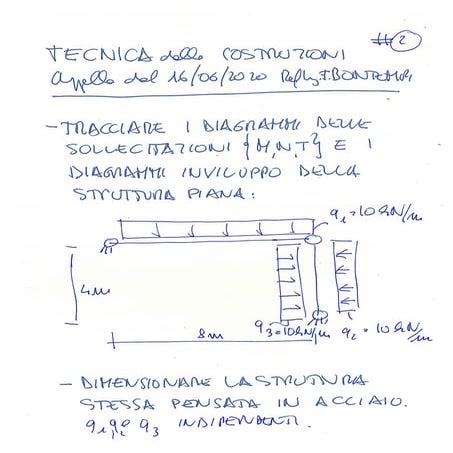 #2
TECNICA delle COSTRUZIONI
Appello del 16/06/2020 Prof. Ing. F. BONTEMPI
- TRACCIARE I DIAGRAMMI DELLE
SOLLECITAZIONI {M,N,T} E I
DIAGRAMMI INVILUPPO DELLA
STRUTTURA PIANA:
q1=10kN/m
4m
8m
q3=10kN/m
q2=10kN/m
- DIMENSIONARE LA STRUTTURA
STESSA PENSATA IN ACCIAIO.
q1, q2 e q3 INDIPENDENTI.